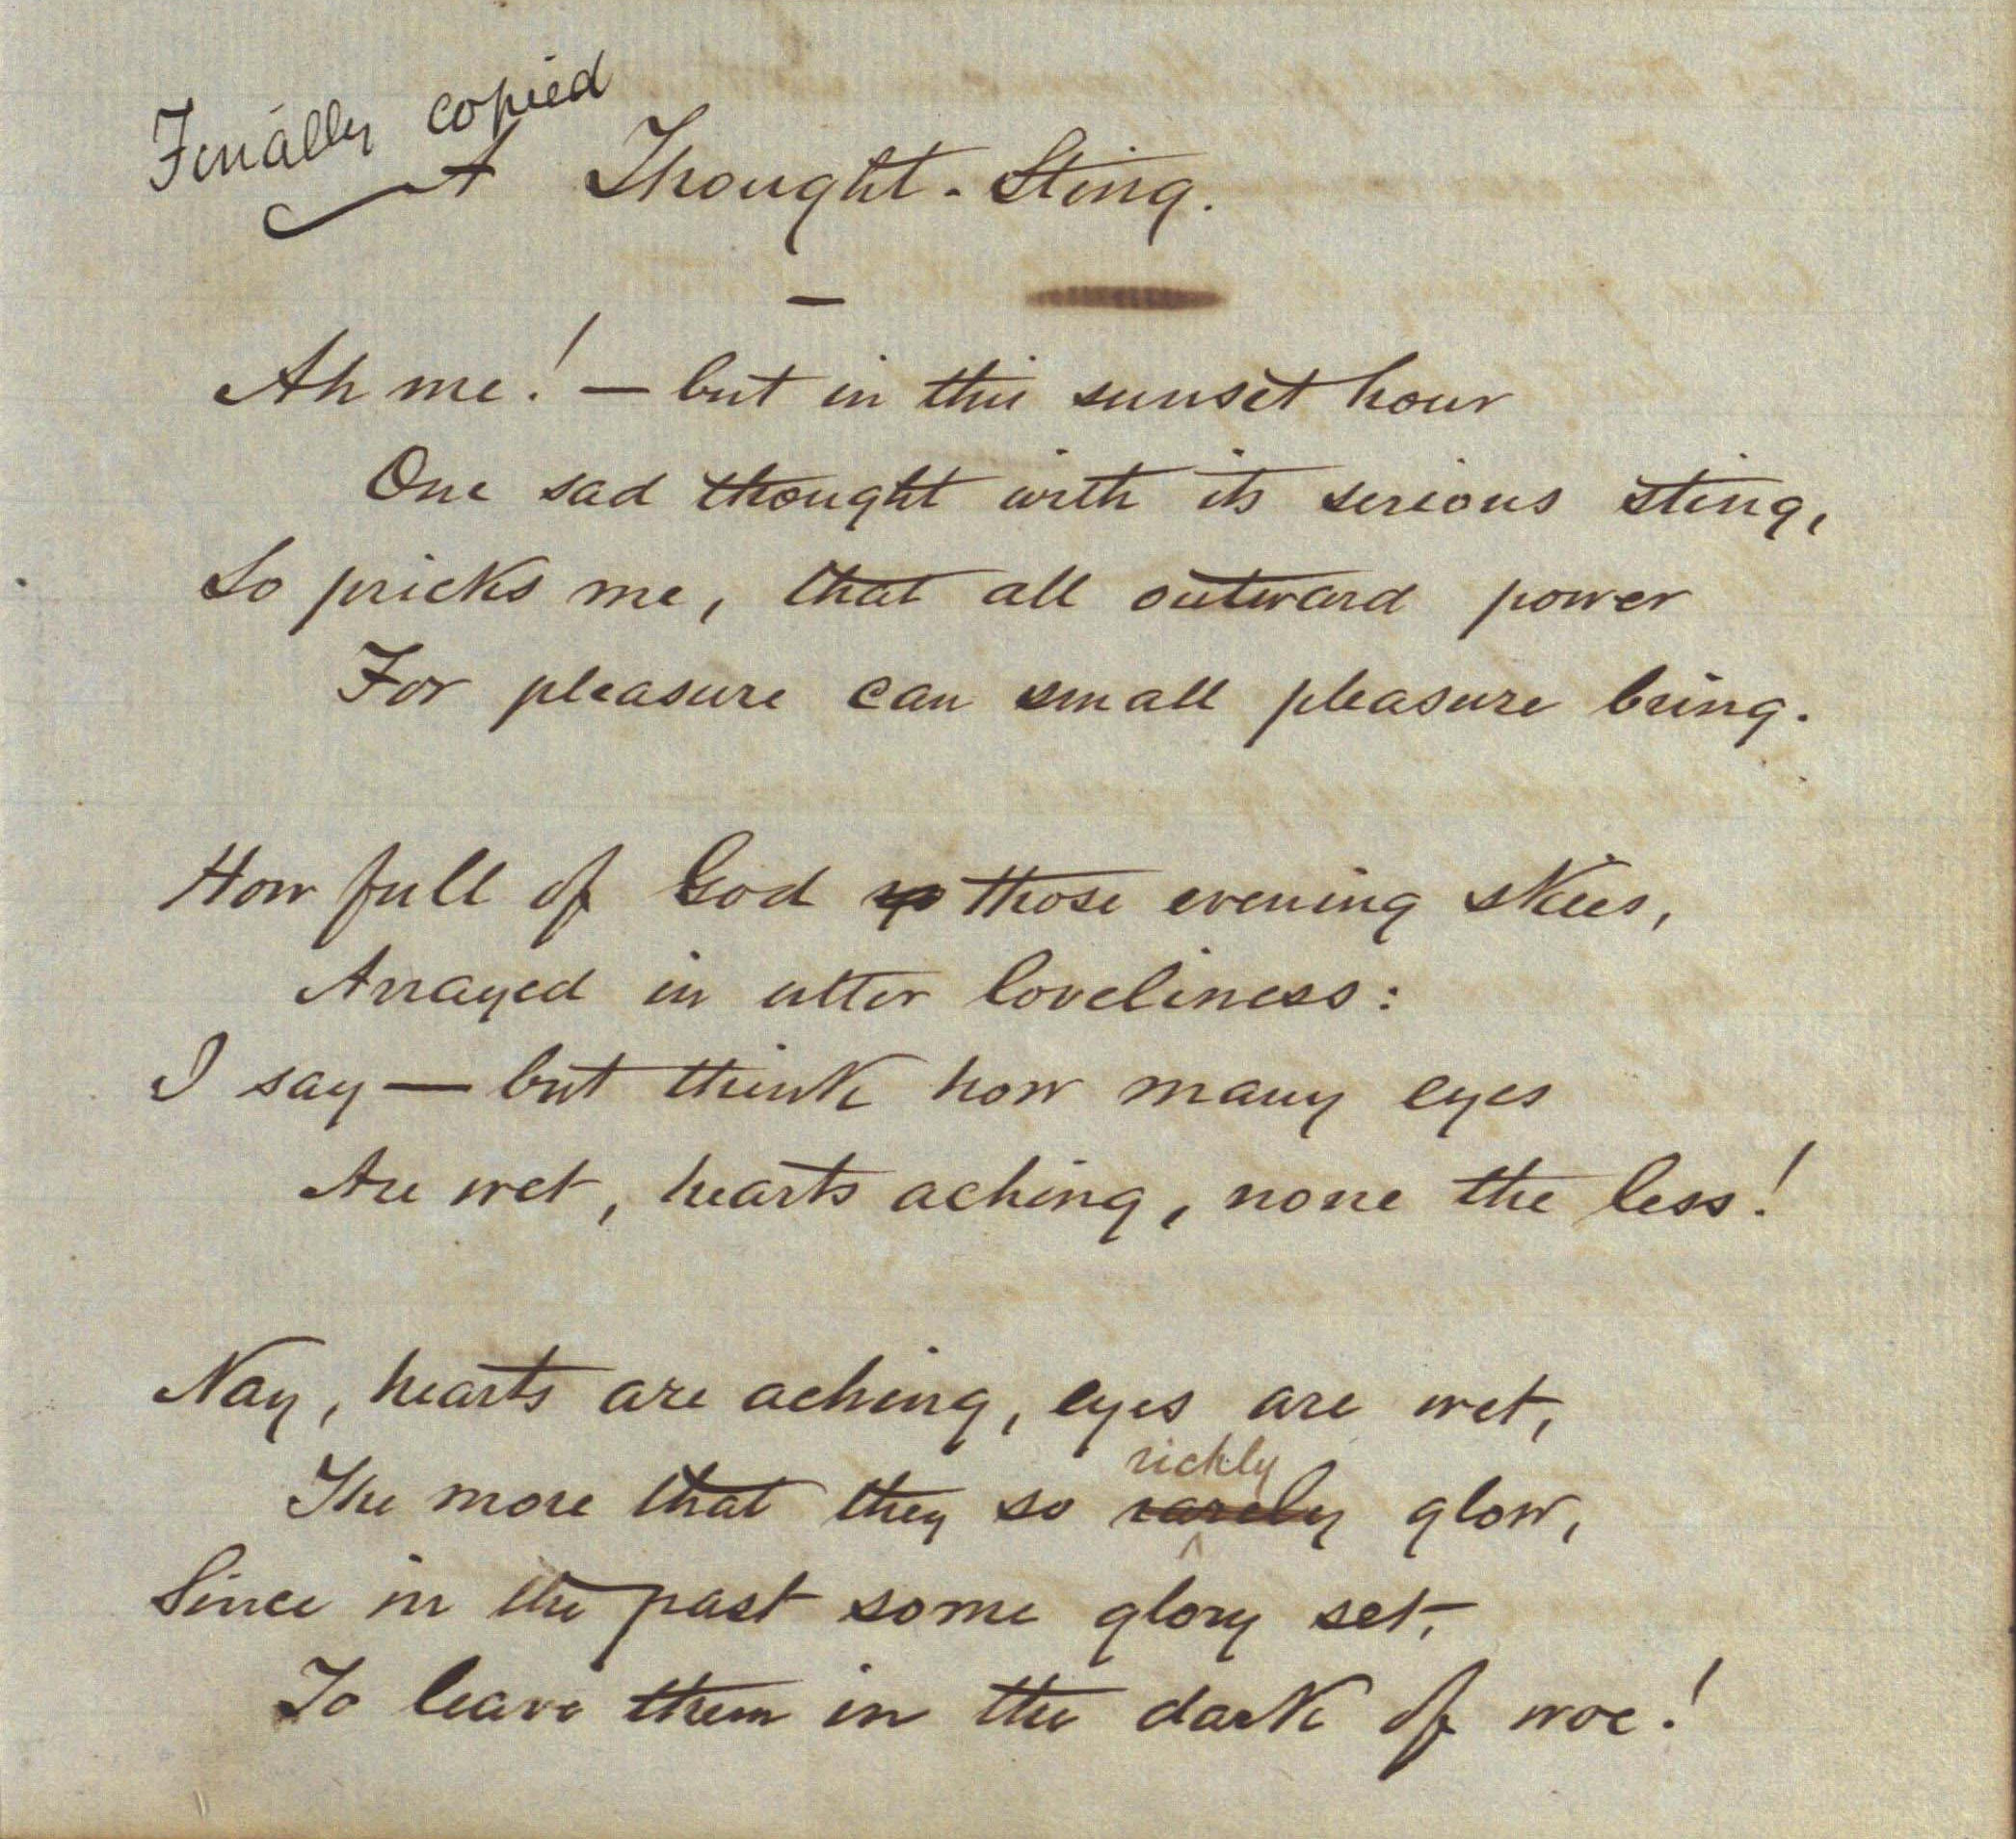 Finally copied
A Thought-Sting.
Ah me! — but in this sunset hour
One sad thought with its serious sting,
So pricks me, that all outward power
For pleasure can small pleasure bring.
How full of God those evening skies,
Arrayed in utter loveliness:
I say — but think how many eyes
Are wet, hearts aching, none the less!
Nay, hearts are aching, eyes are wet,
richly
The more that they so rarely glow,
Since in the past some glory set,
To leave them in the dark of woe!